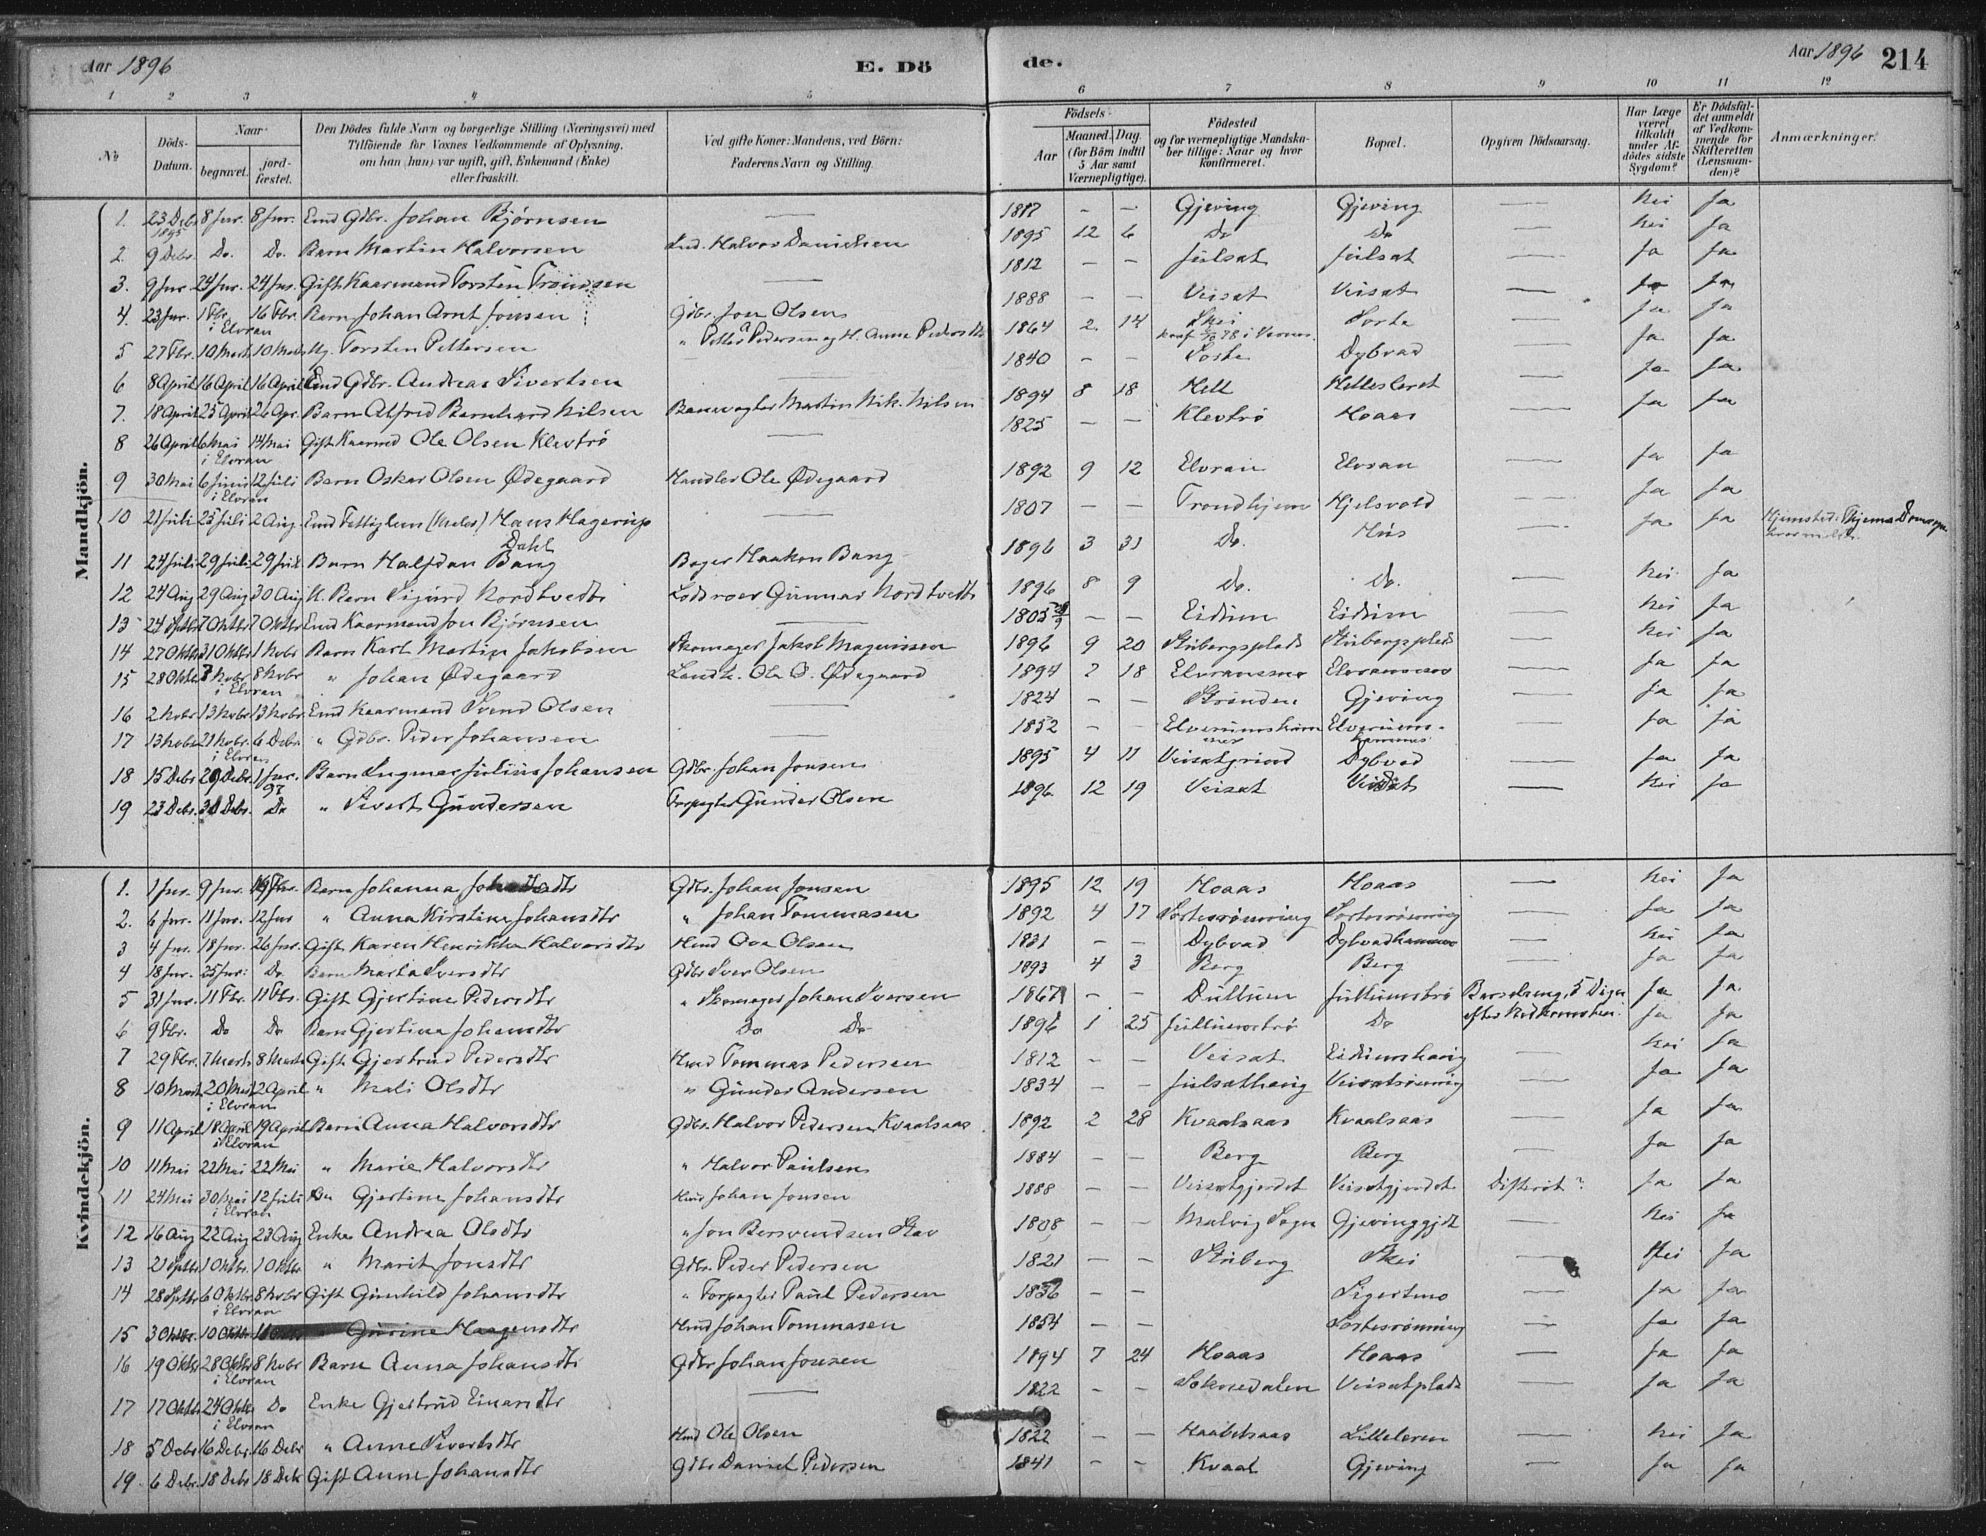 Aar 1896 E. Dö
de. Aar 1896 214
1 2 3 4 5 6 7 8 9 10 11 12
No
Döds-Datum.
Naar
begravet.
jord-fæstet.
Den Dödes fulde Navn og borgerlige Stilling (Næringsvei) med
Tilföiende for Voxnes Vedkommende af Oplysning,
om han (hun) var ugift, gift, Enkemand (Enke)
eller fraskilt.
Ved gifte Koner: Mandens, ved Börn:
Faderens Navn og Stilling.
Födsels
Aar
Maaned. Dag.
(for Börn indtil
5 Aar samt
Værnepligtige).
Födested
og for værnepligtige Mandska-
ber tillige: Naar og hvor
konfirmeret.
Bopæl.
Opgiven Dödsaarsag.
Har Læge
været
tilkaldt
under Af-
dödes sidste
Sygdom?
Er Dödsfal-
det anmeldt
af Vedkom-
mende for
Skifteretten
(Lensman-
den)?
Anmærkninger.
Mandkjön.
1. 23 Debr 1895 8 Jnr. 8 Jnr. Emd Gdbr. Johan Bjørnsen — 1817 - - Gjeving Gjeving — Nei Ja
2. 9 Debr. Do. Do. Barn Martin Halvorsen Halvor Danielsen 1895 12 6 Do Do — Nei Ja
3. 9 Jnr 24 Jnr. 24 Jnr. Gift Kaarmand Torsten Trondsen — 1812 - - Julsat Julsat — Ja Ja
4. 23 Jnr. 1 Fbr. i Elvran 16 Fbr. Barn Johan Arnt Jonsen Gdbr. Jon Olsen 1888 - - Veisat Veisat — Ja Ja
5 27 Fbr. 10 Marts 10 Marts Ug. Torsten Pettersen " Petter Pedersen og H. Anne Pedersdtr 1864 2 14 Skei konf. 78 i Værnes Sorte — Ja Ja
6 8 April 16 April 16 April Emd Gdbr. Andreas Sivertsen — 1840 - - Sorte Dybvad — Ja Ja
7. 18 April 25 April 26 Apr. Barn Alfred Bernhard Nilsen Banevogter Martin Nik. Nilsen 1894 8 18 Hell Hellesleret — Ja Ja
8 26 April 6 Mai i Elvran 14 Mai Gift Kaarmd Ole Olsen Klevtrø — 1825 - - Klevtrø Hoaas — Ja Ja
9 30 Mai 6 Juni i Elvran 12 Juli Barn Oskar Olsen Ødegaard Handler Ole Ødegaard 1892 9 12 Elvran Elvran — Ja Ja
10 21 Juli 25 Juli 2 Aug. Emd Hans Hagerup Dahl — 1807 - - Trondhjem Hjelsvold — Ja Ja
11 24 Juli 29 Juli 29 Juli Barn Halfdan Bang Bager Haakon Bang 1896 3 31 Do. Hus — Ja Ja
12 24 Aug 29 Aug 30 Aug U. Barn Sigurd Nordtvedt Gunnar Nordtvedt 1896 8 9 Do. Do. — Nei Ja
13 24 Septbr 7 Oktbr 7 Oktbr Emd Kaarmand Jon Bjørnsen — 1805 - - Eidum Eidum — Nei Ja
14 27 Oktbr 31 Oktbr 1 Nobr Barn Karl Martin Jakobsen Skomager Jakob Magnussen 1896 9 20 Stubergsplads Stubergsplads — Nei Ja
15 28 Oktbr 7 Nobr i Elvran 8 Nobr " Johan Ødegaard Landh. Ole O. Ødegaard 1894 2 18 Elvransmo Elvransmo — Ja Ja
16 2 Nobr 13 Nobr 13 Nobr Emd Kaarmand Svend Olsen — 1824 - - Stranden Gjeving — Ja Ja
17 13 Nobr 21 Nobr. i Elvran 6 Debr. " Gdbr. Peder Johansen — 1852 - - — Ja Ja
18 15 Debr 29 Debr. 1 Jnr. 97 Barn Ingmar Julius Johansen Gdbr. Johan Jonsen 1895 4 11 Veisatgrind Dybvad — Ja Ja
19 23 Debr. 30 Debr. Do " Sivert Gundersen Forpagter Gunder Olsen 1896 12 19 Veisat Veisat — Nei Ja
Kvindekjön.
1. 1 Jnr. 9 Jnr. Barn Johanna Johansdtr Gdbr. Johan Jonsen 1895 12 19 Hoaas Hoaas — Nei Ja
2. 6 Jnr. 11 Jnr. 12 Jnr " Anna Kirstine Johansdtr " Johan Tommasen 1892 4 17 Sorterønning Sorterønning — Ja Ja
3 4 Jnr. 18 Jnr. 26 Jnr. Gift Karen Henrikka Halvorsdtr Hmd Ove Olsen 1831 - - Dybvad Dybvadhammer — Nei Ja
4 18 Jnr. 25 Jnr. Do. Barn Marta Iversdtr Gdbr Iver Olsen 1893 4 3 Berg Berg — Ja Ja
5 31 Jnr. 11 Fbr. 11 Fbr. Gift Gjertine Pedersdtr " Skomager Johan Iversen 1867 - - Dullum Jullumstrø Barselseng, 5 Dage efter Nedkomsten. Ja Ja
6 9 Fbr. Do Do Barn Gjertina Johansdtr Do Do 1896 1 25 Jullumstrø Do Ja Ja
7 29 Fbr. 7 Marts 8 Marts Gift Gjertrud Pedersdtr Hmd Tommas Pedersen 1812 - - Veisat Eidumshaug — Nei Ja
8 10 Marts 20 Marts i Elvran 12 April " Mali Olsdtr " Gunder Andersen 1834 - - Julsathaug Veisatrønning — Ja Ja
9 11 April 18 April i Elvran 19 April Barn Anna Halvorsdtr Gdbr. Halvor Pedersen Kvaalsaas 1892 2 28 Kvaalsaas Kvaalsaas — Ja Ja
10 11 Mai 22 Mai 22 Mai " Marie Halvorsdtr " Halvor Paulsen 1884 - - Berg Berg — Ja Ja
11 24 Mai 30 Mai i Elvran 12 Juli Do Gjertine Johansdtr Hmd Johan Jonsen 1888 - - Veisatgjerdet Veisatgjerdet Difterit? Ja Ja
12 16 Aug 22 Aug 23 Aug Enke Andrea Olsdtr " Jon Bersvendsen Stav 1808 - - Malvig Sogn Gjevinggjdt — Nei Ja
13 21 Septbr 1 Oktbr. 1 Oktbr " Marit Jonsdtr Gdbr. Peder Pedersen 1821 - - Stuberg Skei — Nei Ja
14 28 Septbr 6 Oktbr i Elvran 8 Nobr Gift Gunhild Johansdtr " Forpagter Paul Pedersen 1836 - - Sigertmo — Ja Ja
15 3 Oktbr. 10 Oktbr Gurine Haagensdtr Hmd Johan Tommasen 1854 - - Sorterønning — Ja Ja
16 19 Oktbr 28 Oktbr i Elvran 8 Nobr Barn Anna Johansdtr Gdbr Johan Jonsen 1894 7 24 Hoaas Hoaas — Ja Ja
17 17 Oktbr 24 Oktbr i Elvran Do Enke Gjertrud Einarsdtr — 1822 - - Veisatplads — Ja Ja
18 5 Debr 16 Debr. 16 Debr " Anne Sivertsdtr Hmd Ole Olsen 1822 - - Lilleleren — Nei Ja
19. 6 Debr. 18 Debr 18 Debr Gift Anne Johansdtr Gdbr Daniel Pedersen 1841 - - Kvaal Gjeving — Ja Ja